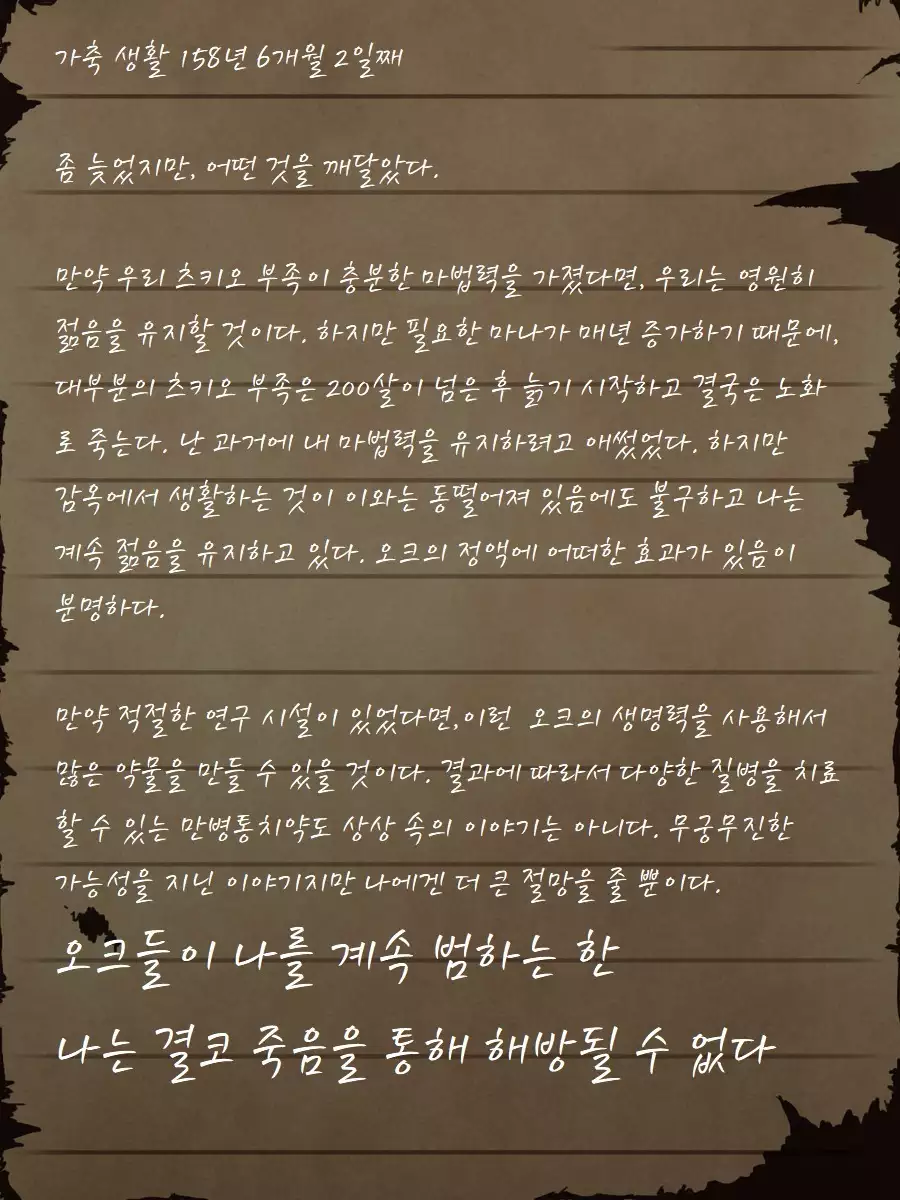 가축 생활 158년 6개월 2일째
좀 늦었지만, 어떤 것을 깨달았다.
만약 우리 츠키오 부족이 충분한 마법력을 가졌다면, 우리는 영원히
젊음을 유지할 것이다. 하지만 필요한 마나가 매년 증가하기 때문에,
대부분의 츠키오 부족은 200살이 넘은 후 늙기 시작하고 결국은 노화
로 죽는다. 난 과거에 내 마법력을 유지하려고 애썼었다. 하지만
감옥에서 생활하는 것이 이와는 동떨어져 있음에도 불구하고 나는
계속 젊음을 유지하고 있다. 오크의 정액에 어떠한 효과가 있음이
분명하다.
만약 적절한 연구 시설이 있었다면,이런  오크의 생명력을 사용해서
많은 약물을 만들 수 있을 것이다. 결과에 따라서 다양한 질병을 치료
할 수 있는 만병통치약도 상상 속의 이야기는 아니다. 무궁무진한
가능성을 지닌 이야기지만 나에겐 더 큰 절망을 줄 뿐이다.
오크들이 나를 계속 범하는 한
나는 결코 죽음을 통해 해방될 수 없다